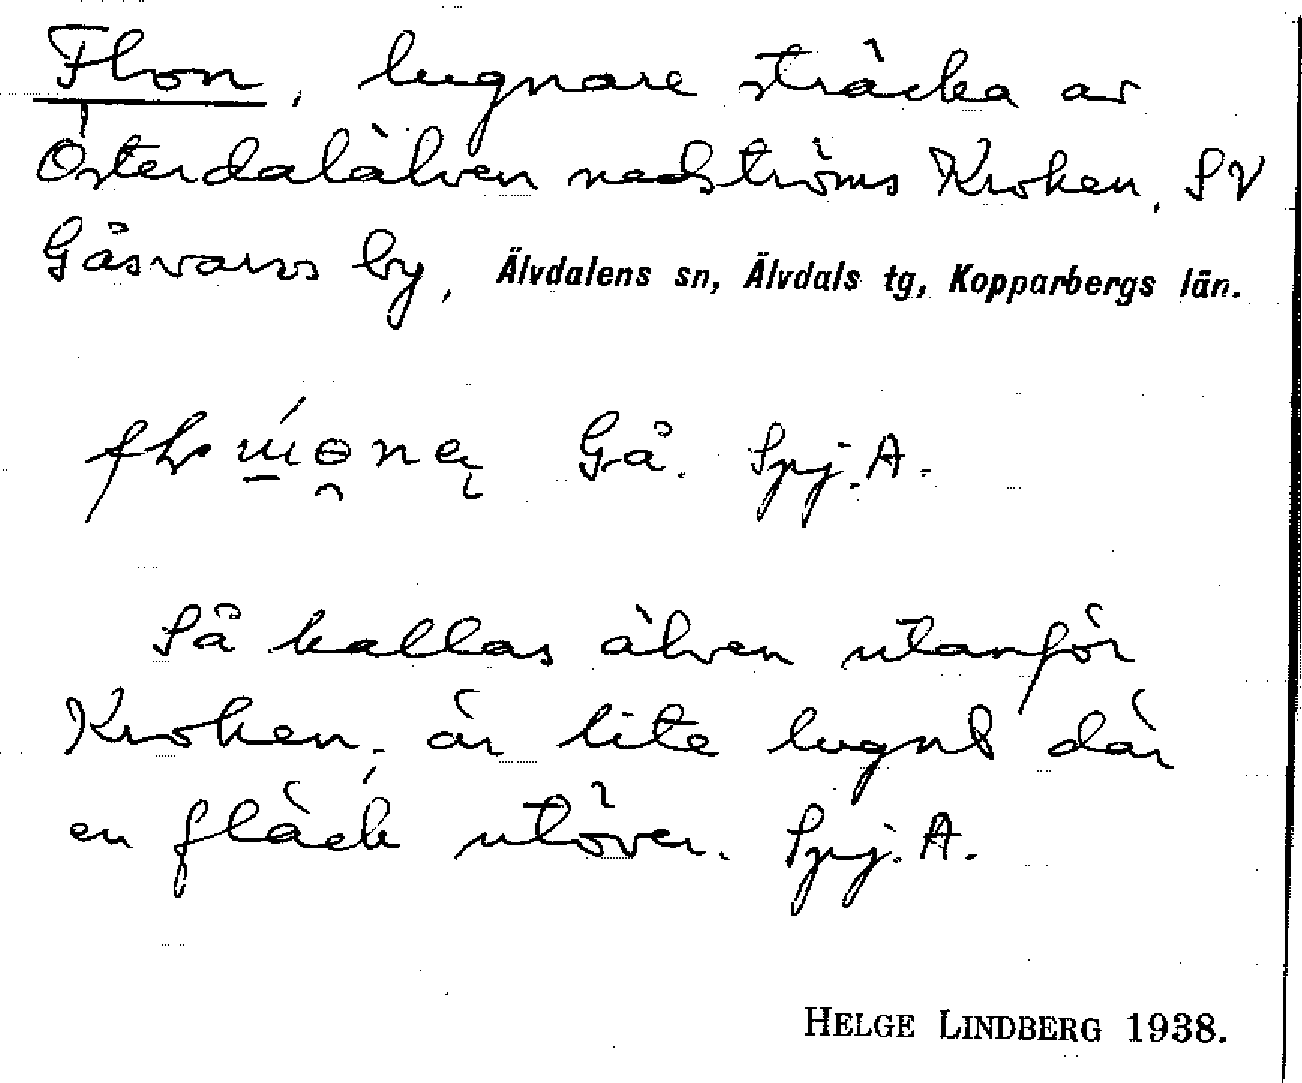 Flon, lugnare sträcka av
Österdalälven nedströms Kroken, SV
Gåsvarvs by, Älvdalens sn, Älvdals tg, Kopparbergs län.
Gå. Spj. A.
Så kallas älven utanför
Kroken, är lite lugnt där
en fläck utöver. Spj. A.
HELGE LINDBERG 1938.